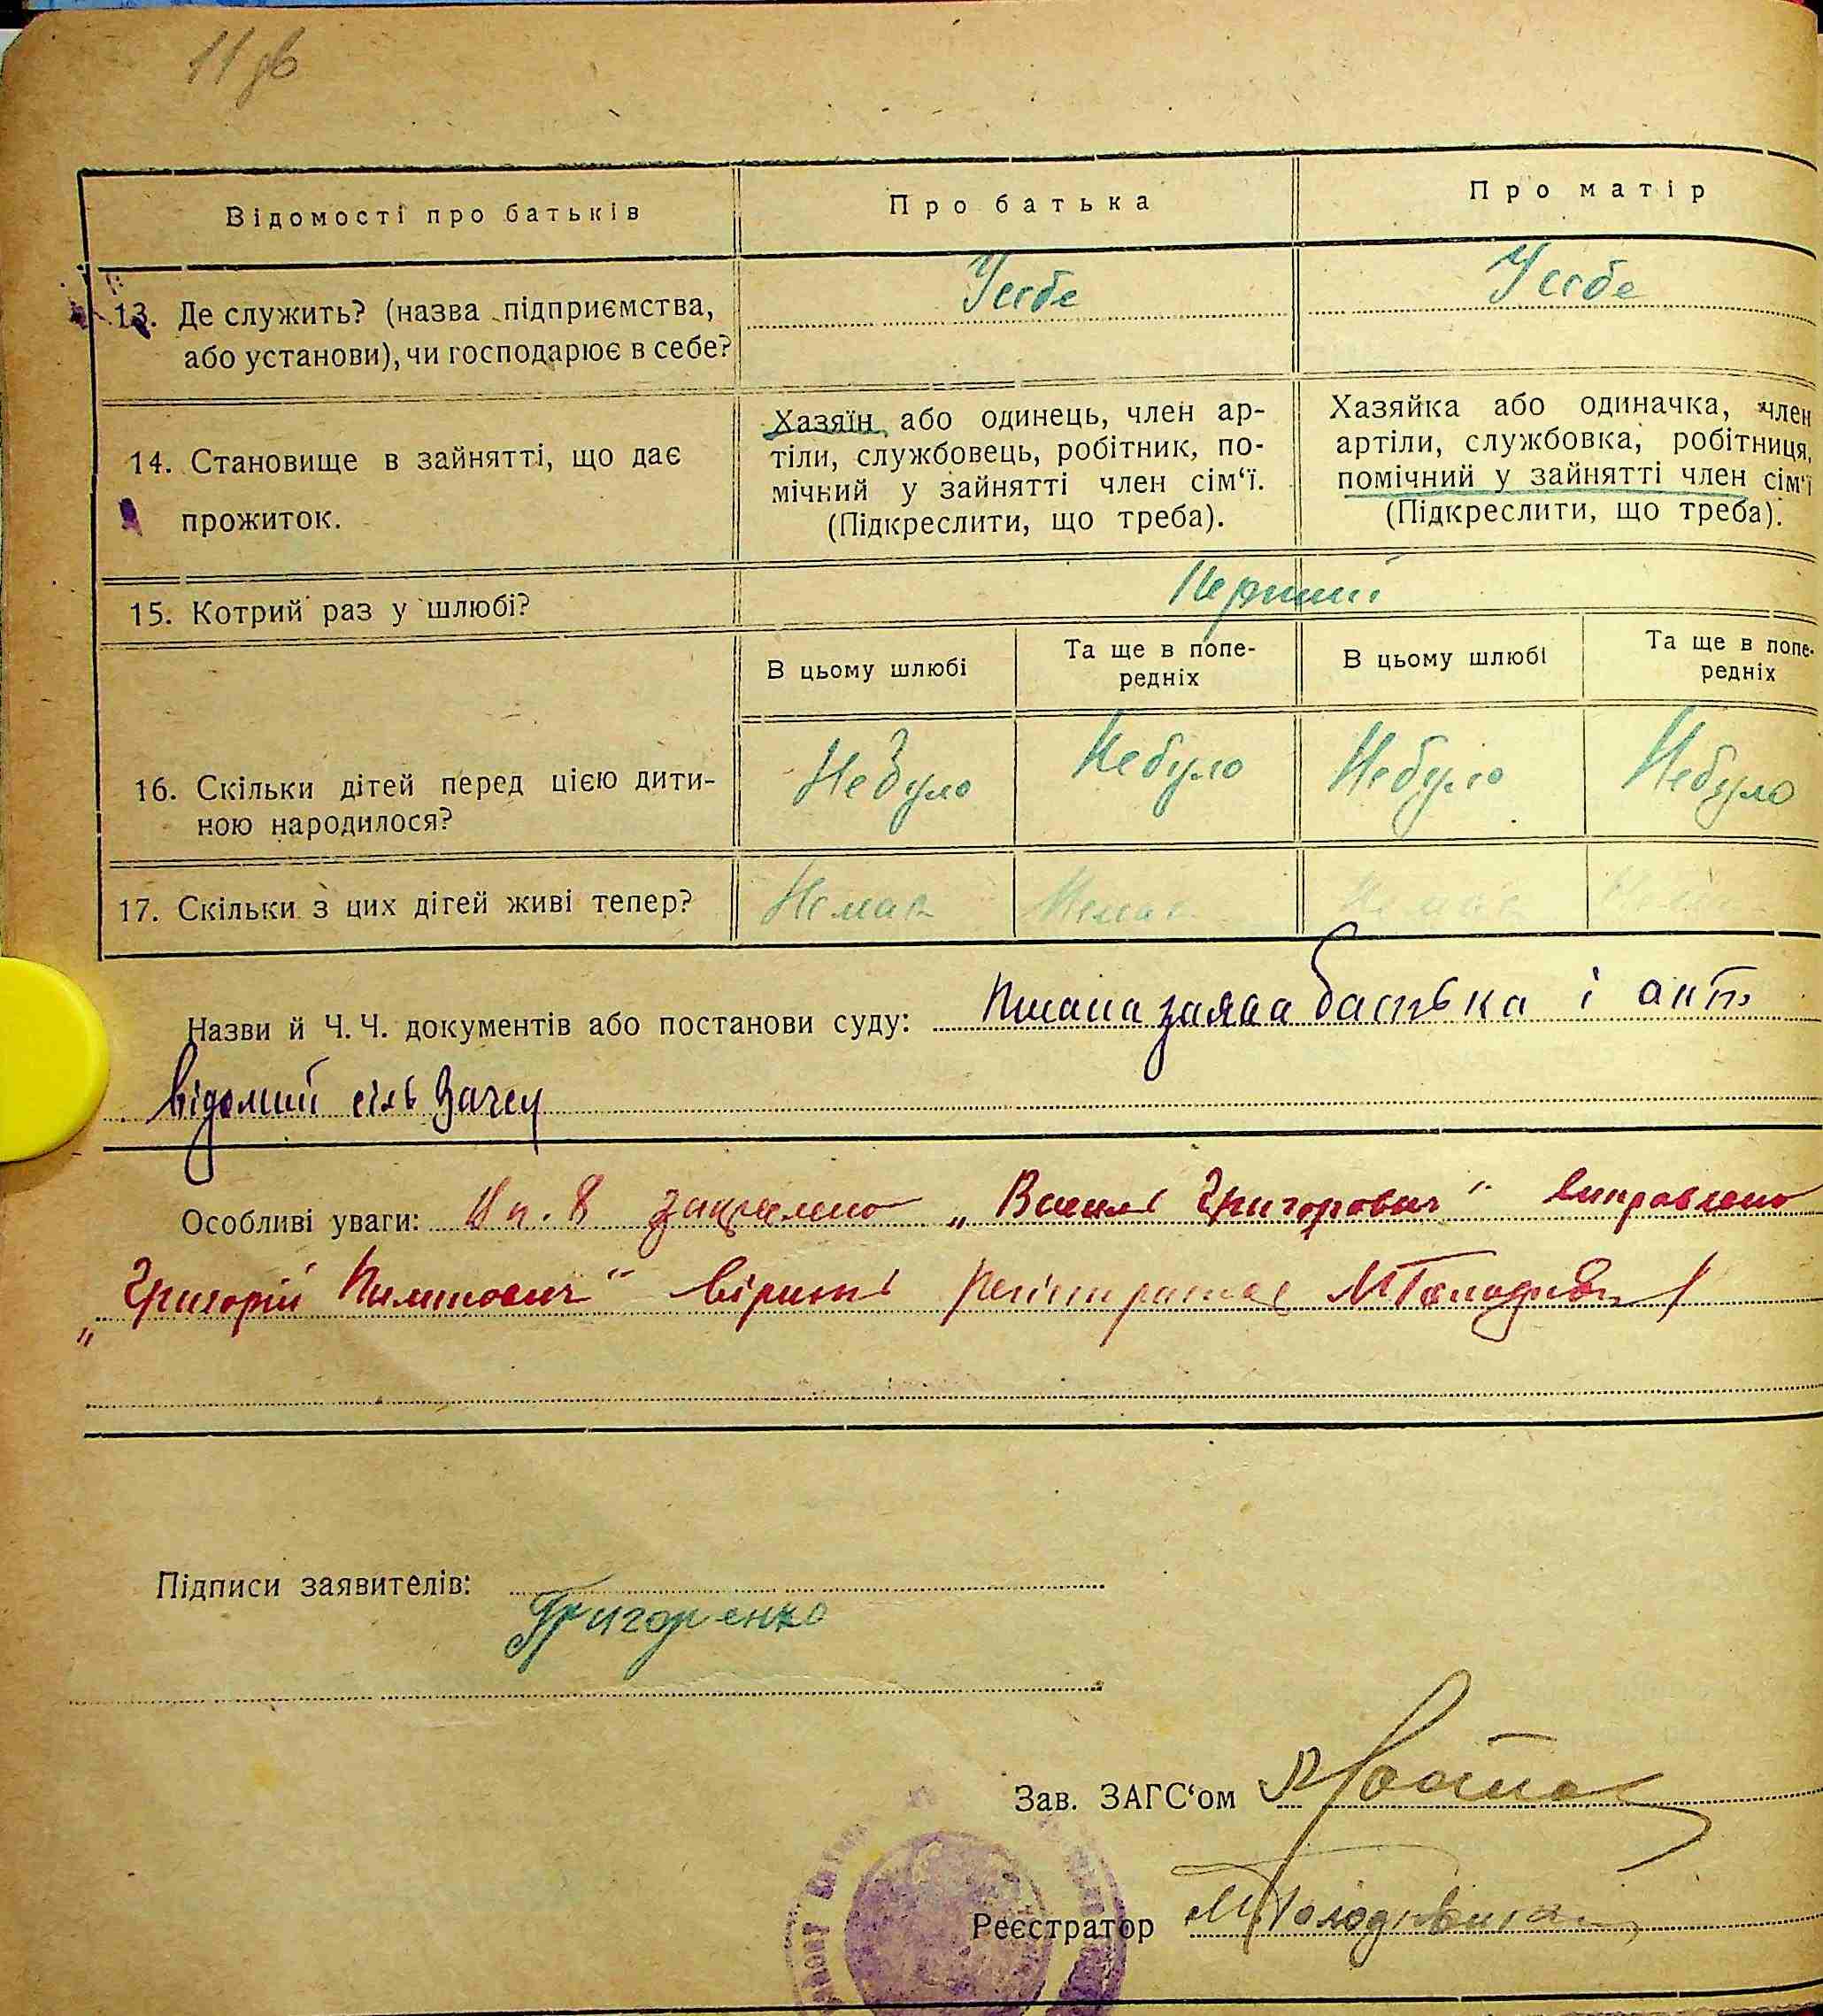 11 зв
Відомості про батьків
Про батька
Про матір
13. Де служить? (назва підприємства, або установи), чи господарює в себе?
Усебе
Усебе
14. Становище в зайнятті, що дає прожиток.
Хазяїн або одинець, член ар-
тіли, службовець, робітник, по-
мічний у зайнятті член сім'ї.
(Підкреслити, що треба).
Хазяйка або одиначка, член
артіли, службовка, робітниця,
помічний у зайнятті член сім'ї
(Підкреслити, що треба).
15. Котрий раз у шлюбі?
Перший
В цьому шлюбі
Та ще в попе-
редніх
В цьому шлюбі
Та ще в попе-
редніх
16. Скільки дітей перед цією дити-
ною народилося?
Небуло
Небуло
Небуло
Небуло
17. Скільки з цих дітей живі тепер?
Немає
Немає
Немає
Немає
Назви й Ч. Ч. документів або постанови суду: заява батька і акт
відомий сіль Загсу
Особливі уваги: В п. 8 закреслено „Василь Григорович" виправлено
„Григорій Пилипович" вірить Реєстратор
Підписи заявителів:
Григоренко
Зав. ЗАГС'ом
Реєстратор